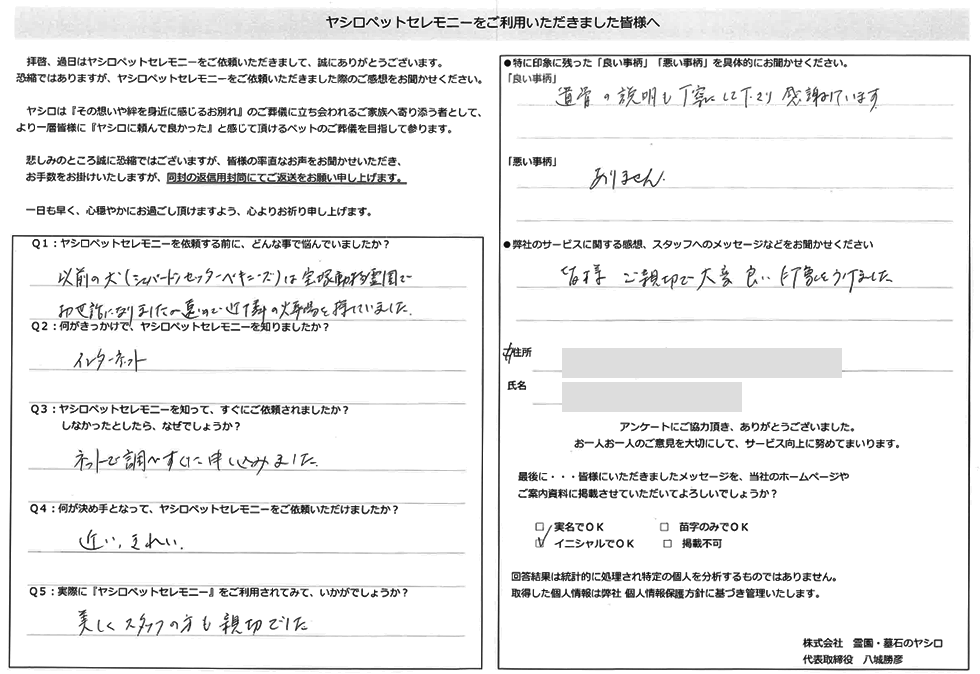 ヤシロペットセレモニーをご利用いただきました皆様へ
拝啓、過日はヤシロペットセレモニーをご依頼いただきまして、誠にありがとうございます。
恐縮ではありますが、ヤシロペットセレモニーをご依頼いただきました際のご感想をお聞かせください。
ヤシロは『その想いや絆を身近に感じるお別れ』のご葬儀に立ち会われるご家族へ寄り添う者として、
より一層皆様に『ヤシロに頼んで良かった』と感じて頂けるペットのご葬儀を目指して参ります。
悲しみのところ誠に恐縮ではございますが、皆様の率直なお声をお聞かせいただき、
お手数をお掛けいたしますが、同封の返信用封筒にてご返送をお願い申し上げます。
一日も早く、心穏やかにお過ごし頂けますよう、心よりお祈り申し上げます。
Q1:ヤシロペットセレモニーを依頼する前に、どんな事で悩んでいましたか?
以前の犬(シェパードンセッターペキニーズ)は宝塚動物霊園で
お世話になりましたが遠いので近隣の火葬場を探していました。
Q2:何がきっかけで、ヤシロペットセレモニーを知りましたか?
インターネット
Q3:ヤシロペットセレモニーを知って、すぐにご依頼されましたか?
しなかったとしたら、なぜでしょうか?
ネットで調べすぐに申し込みました。
Q4:何が決め手となって、ヤシロペットセレモニーをご依頼いただけましたか?
近い、きれい。
Q5:実際に『ヤシロペットセレモニー』をご利用されてみて、いかがでしょうか?
美しくスタッフの方も親切でした
●特に印象に残った「良い事柄」「悪い事柄」を具体的にお聞かせください。
「良い事柄」
遺骨の説明も丁寧にして下さり感謝しています
「悪い事柄」
ありません。
●弊社のサービスに関する感想、スタッフへのメッセージなどをお聞かせください
皆様ご親切で大変良い印象をうけました
住所
氏名
アンケートにご協力頂き、ありがとうございました。
お一人お一人のご意見を大切にして、サービス向上に努めてまいります。
最後に・・・皆様にいただきましたメッセージを、当社のホームページや
ご案内資料に掲載させていただいてよろしいでしょうか?
□ 実名でOK □ 苗字のみでOK
☑ イニシャルでOK □ 掲載不可
回答結果は統計的に処理され特定の個人を分析するものではありません。
取得した個人情報は弊社 個人情報保護方針に基づき管理いたします。
株式会社 霊園・墓石のヤシロ
代表取締役 八城勝彦